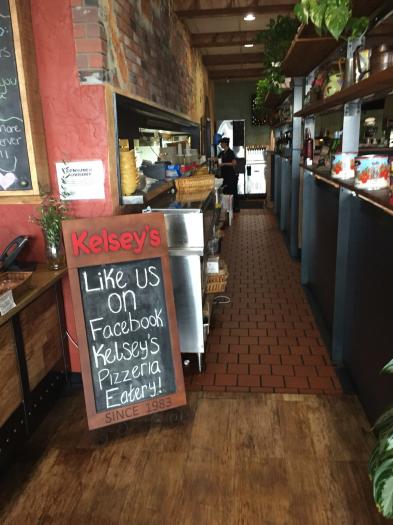 Kelsey's
Like us
on
Facebook
Kelsey's
Pizzeria
Eatery!
SINCE 1983
you
more